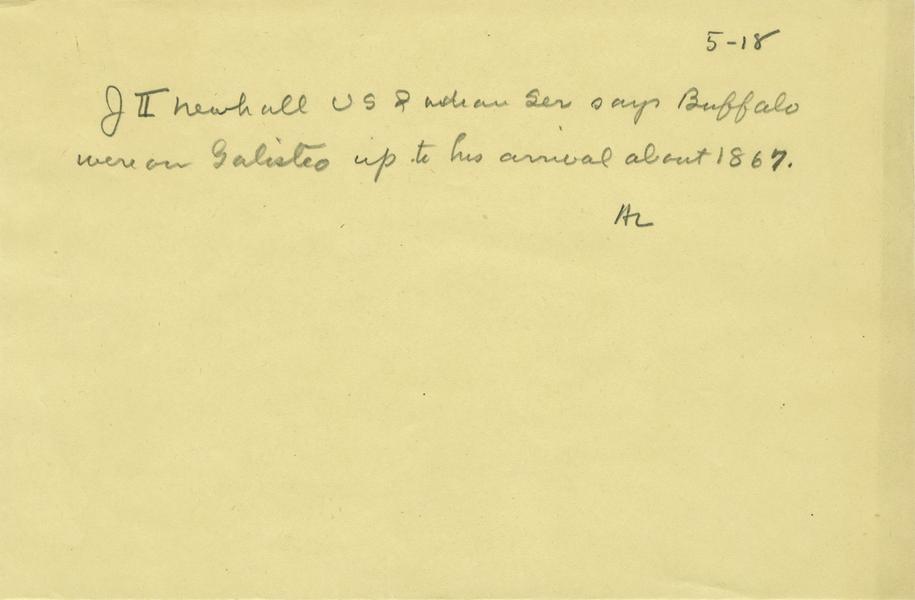 5-18
J II Newhall US Indian Ser says Buffalo
were on Galisteo up to his arrival about 1867.
AL